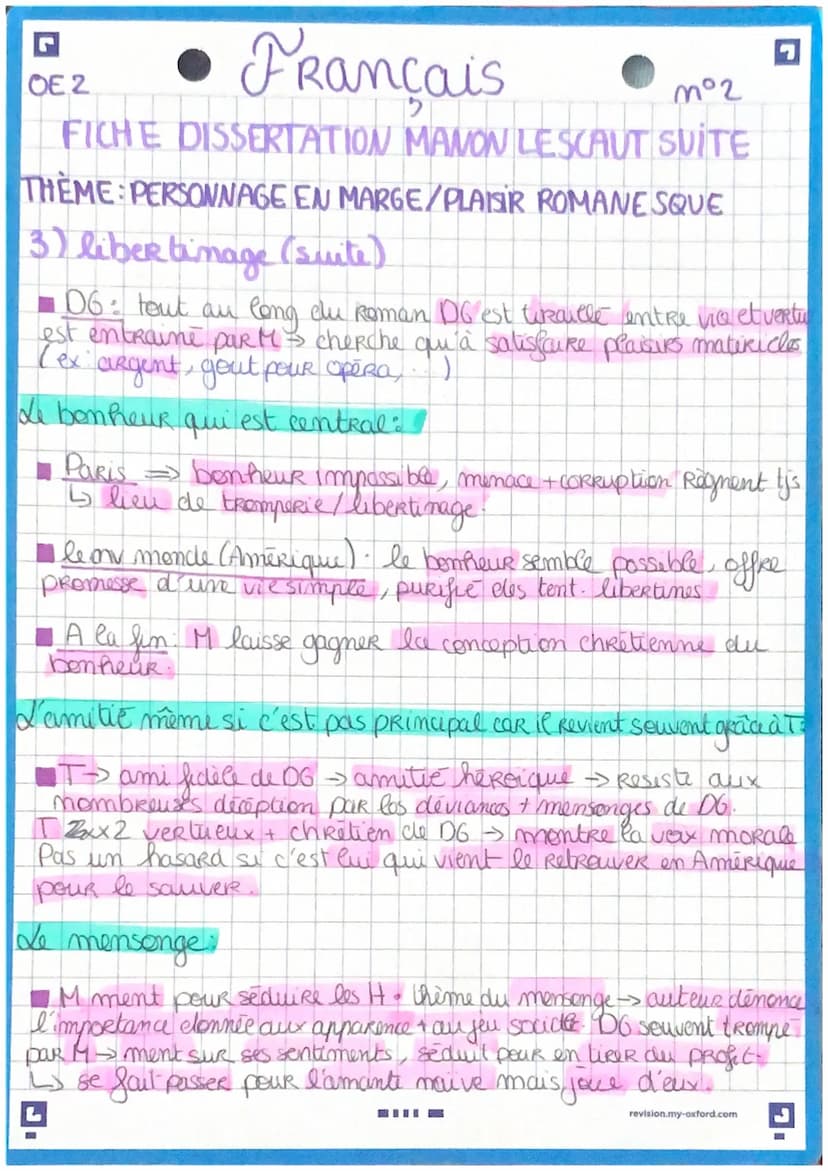 Français
OE2
n°2
FICHE DISSERTATION MANON LESCAUT SUITE
THÈME : PERSONNAGE EN MARGE / PLAISIR ROMANESQUE
3) libertinage (suite)
DG : tout au long du roman DG est tiraillé entre vice et vertu
est entrainé par M → cherche qu'à satisfaire plaisirs matériels
(ex : argent, gout pour opéra, ...)
Le bonheur qui est central :
Paris ⇒ bonheur impossible, menace + corruption règnent tjs
↳ lieu de tromperie / libertinage.
le nv monde (Amérique) : le bonheur semble possible, offre
promesse d'une vie simple, purifié des tent. libertines
A la fin : M laisse gagner la conception chrétienne du
bonheur.
L'amitié même si c'est pas principal car il revient souvent grâce à T :
T → ami fidèle de DG → amitié héroïque → resiste aux
nombreuses déception par les déviances + mensonges de DG.
T x2 vertueux + chrétien de DG → montre la voix morale
Pas un hasard si c'est lui qui vient le retrouver en Amérique
pour le sauver.
Le mensonge :
M ment pour séduire les H. thème du mensonge → auteur dénonce
l'importance donnée aux apparence + au jeu social. DG souvent trompé
par M → ment sur ses sentiments, séduit pour en tirer du profit.
↳ se fait passer pour l'amante naïve mais joue d'eux.
revision.my-oxford.com